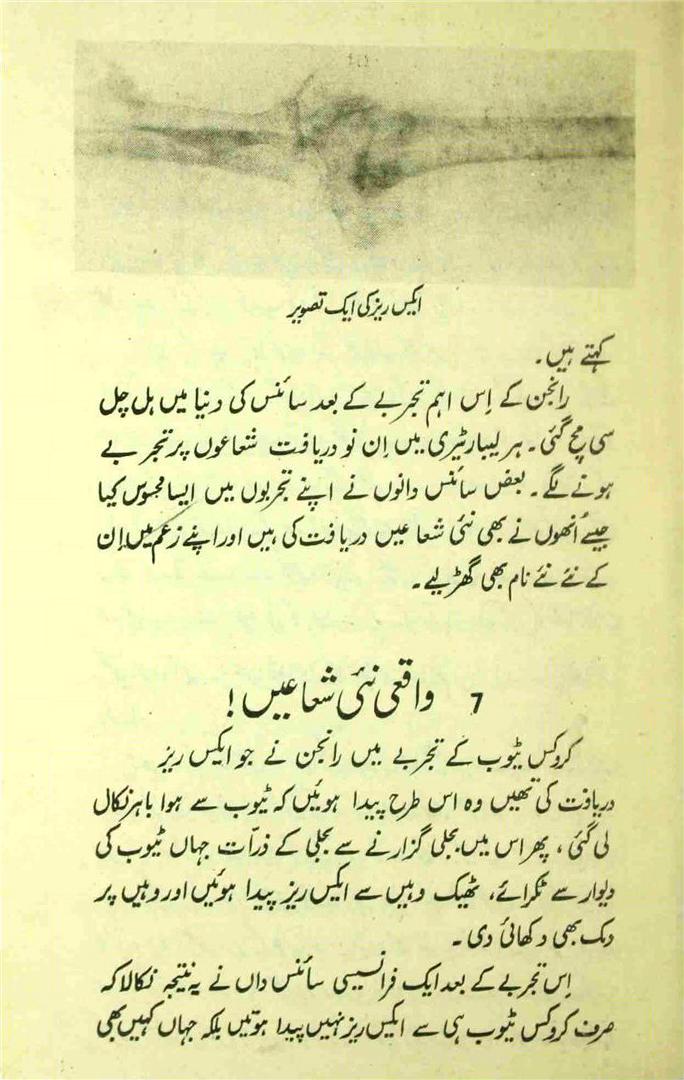 ایکس ریز کی ایک تصویر
کہتے ہیں۔
رانجن کے اِس اہم تجربے کے بعد سائنس کی دنیا میں ہل چل
سی مچ گئی۔ ہر لیبارٹیری میں اِن نو دریافت شعاعوں پر تجربے
ہونے لگے۔ بعض سائنس دانوں نے اپنے تجربوں میں ایسا محسوس کیا
جیسے اُنھوں نے بھی نئی شعاعیں دریافت کی ہیں اور اپنے زعم میں اِن
کے نئے نئے نام بھی گھڑ لیے۔
7 واقعی نئی شعاعیں!
کروکس ٹیوب کے تجربے میں رانجن نے جو ایکس ریز
دریافت کی تھیں وہ اس طرح پیدا ہوئیں کہ ٹیوب سے ہوا باہر نکال
لی گئی، پھر اس میں بجلی گزارنے سے بجلی کے ذرّات جہاں ٹیوب کی
دیوار سے ٹکرائے، ٹھیک وہیں سے ایکس ریز پیدا ہوئیں اور وہیں پر
دمک بھی دکھائی دی۔
اِس تجربے کے بعد ایک فرانسیسی سائنس داں نے یہ نتیجہ نکالا کہ
صرف کروکس ٹیوب ہی سے ایکس ریز نہیں پیدا ہوتیں بلکہ جہاں کہیں بھی